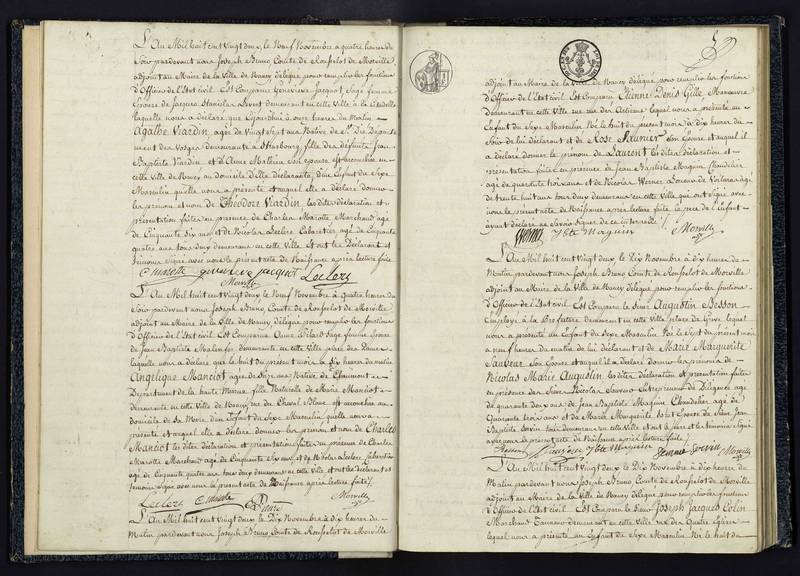 L'An Mil huit cent Vingt deux, le Neuf Novembre à quatre heures du
Soir pardevant nous Joseph Bruno Comte de Ronfselot de Morville
adjoint au Maire de la Ville de Nancy délégué pour remplir les fonctions
d'Officier de l'Etat civil Est Comparu Geneviève Jacquot, Sage femme
Epouse de Jacques Stanislas demeurant en cette Ville à la Citadelle
laquelle nous a déclaré que à onze heures du Matin
Agathe Viardin, agée de Vingt Sept ans Native de St. Dié Departe
ment des Vosges Demeurante à Strasbourg, fille des défunts Jean
Baptiste Viardin et d'Anne Mathieu Son epouse est accouchée en
cette Ville de Nancy, au domicile d'Elle déclarante, d'un Enfant du Sexe
Masculin qu'elle nous a présenté et auquel elle a déclaré donner
les prénom et nom de Théodore Viardin, les dites déclaration et
présentation faites en présence de Charles Marotte, Marchand agé
de Cinquante Six ans, et de Nicolas Leclerc Cabaretier agé de Cinquante
quatre ans tous deux demeurans en cette Ville Et ont les Déclarant et
témoins Signé avec nous le présent acte de Naissance après lecture faite
C marotte geneviève jacquot Leclerc
Morville
L'An Mil huit cent Vingt deux le Neuf Novembre à quatre heures du
Soir pardevant nous Joseph Bruno, Comte de Ronfselot de Morville
adjoint au Maire de la Ville de Nancy délégué pour remplir les fonctions
d'Officier de l'Etat civil Est Comparu Anne Sage femme Epouse
de Jean Baptiste demeurante en cette Ville place des Dames
laquelle nous a déclaré que le huit du présent mois à dix heures du matin
Angélique Manciot agée de Seize ans Native de Chaumont
Département de la haute Marne fille Naturelle de Marie Manciot
demeurante en cette Ville de Nancy, rue du Cheval Blanc est accouchée au
domicile de Sa Mère d'un Enfant du Sexe Masculin qu'elle nous a
présenté et auquel elle a déclaré donner les prénom et nom de Charles
Manciot les dites déclaration et présentation faites en présence de Charles
Marotte Marchand agé de Cinquante Six ans, et de Nicolas Leclerc Cabaretier
agé de Cinquante quatre ans tous deux demeurans en cette Ville et ont les déclarant et
témoins Signé avec nous le présent acte de Naissance après lecture faite
Leclerc C marotte Morville
L'An Mil huit cent Vingt deux le Dix Novembre à dix heures du
Matin pardevant nous Joseph Bruno Comte de Ronfselot de Morville
adjoint au Maire de la Ville de Nancy délégué pour remplir les fonctions
d'Officier de l'Etat civil Est Comparu Etienne Denis Gille Manœuvre
demeurant en cette Ville rue des lequel nous a présenté un
Enfant du Sexe Masculin Né le huit du présent mois à dix heures du
Soir de lui déclarant et de Rose Saunier Son Epouse et auquel il
a déclaré donner le prénom de Laurent les dites déclaration et
présentation faites en présence de Jean Baptiste Maquin Chandelier
agé de quarante trois ans et de Nicolas Werner agé
de trente huit ans tous deux demeurans en cette Ville qui ont Signé avec
nous le présent acte de Naissance après lecture faite le père de l'enfant
ayant déclaré ne Savoir Signer de ce interpellé
Werner J Bte Maquin Morville
L'An Mil huit cent Vingt deux le Dix Novembre à dix heures du
Matin, pardevant nous Joseph Bruno Comte de Ronfselot de Morville
adjoint au Maire de la Ville de Nancy délégué pour remplir les fonctions
d'Officier de l'Etat civil Est Comparu le Sieur Augustin Besson
Employé à la Préfecture demeurant en cette Ville place de Grève lequel
nous a présenté un Enfant du Sexe Masculin Né le Sept du présent mois
à neuf heures du matin de lui déclarant et de Marie Marguerite
Sauveur Son Epouse et auquel il a déclaré donner les prénoms de
Nicolas Marie Augustin les dites déclaration et présentation faites
en présence des Sieurs Nicolas Sauveur Entrepreneur de agé
de quarante deux ans de Jean Baptiste Maquin Chandelier agé de
Quarante trois ans et de Marie Marguerite Epouse du Sieur Jean
Baptiste demeurans en cette Ville et ont le père et les témoins Signé
avec nous le présent acte de Naissance après lecture faite
Besson J Bte Maquin femme Morville
L'An Mil huit cent Vingt deux le Dix Novembre à dix heures du
Matin pardevant nous Joseph Bruno Comte de Ronfselot de Morville
adjoint au Maire de la Ville de Nancy délégué pour remplir les fonctions
d'Officier de l'Etat civil Est Comparu le Sieur Joseph Jacques Colin
Marchand Tanneur demeurant en cette Ville rue des Quatre Eglises
lequel nous a présenté un Enfant du Sexe Masculin Né le huit du